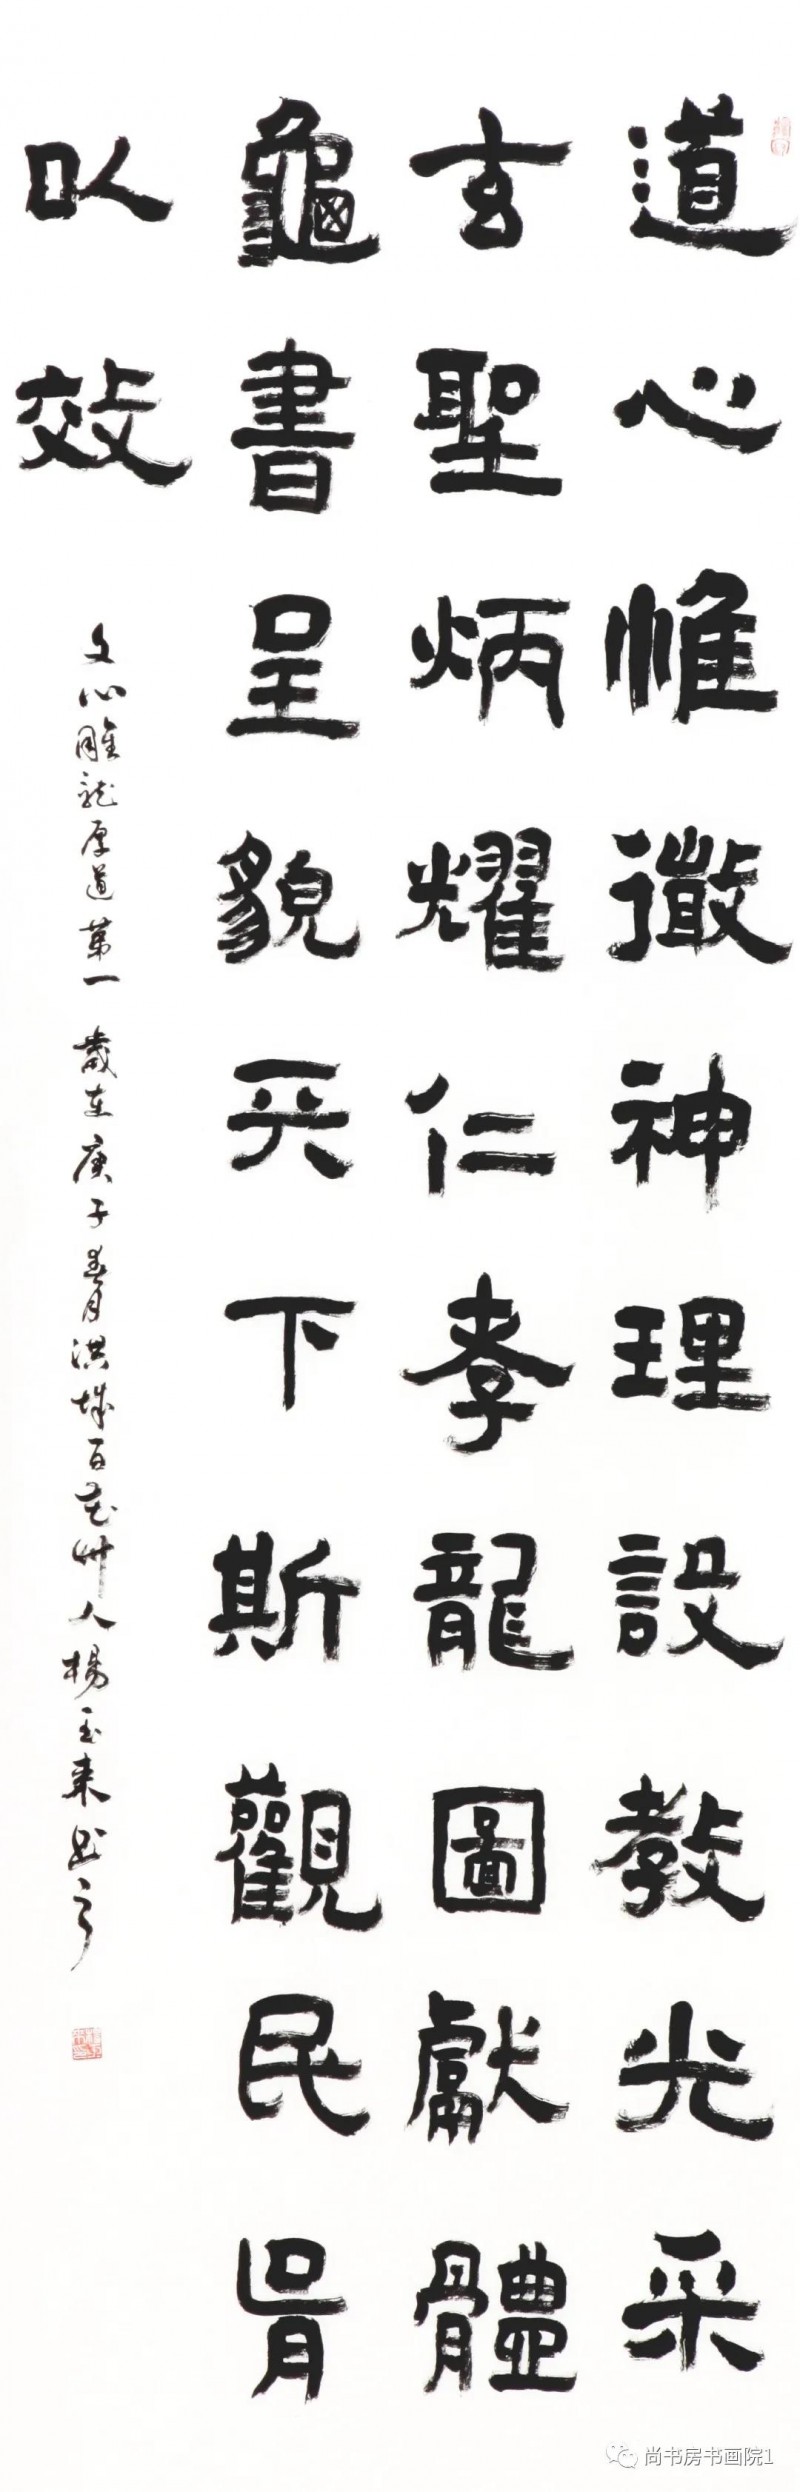 道心惟微神理設教光采
玄聖炳耀仁孝龍圖獻體
龜書呈貌天下斯觀民胥
以效
文心雕龍原道第一 歲在庚子春月洪城百花州人楊玉來書
尚书房书画院1